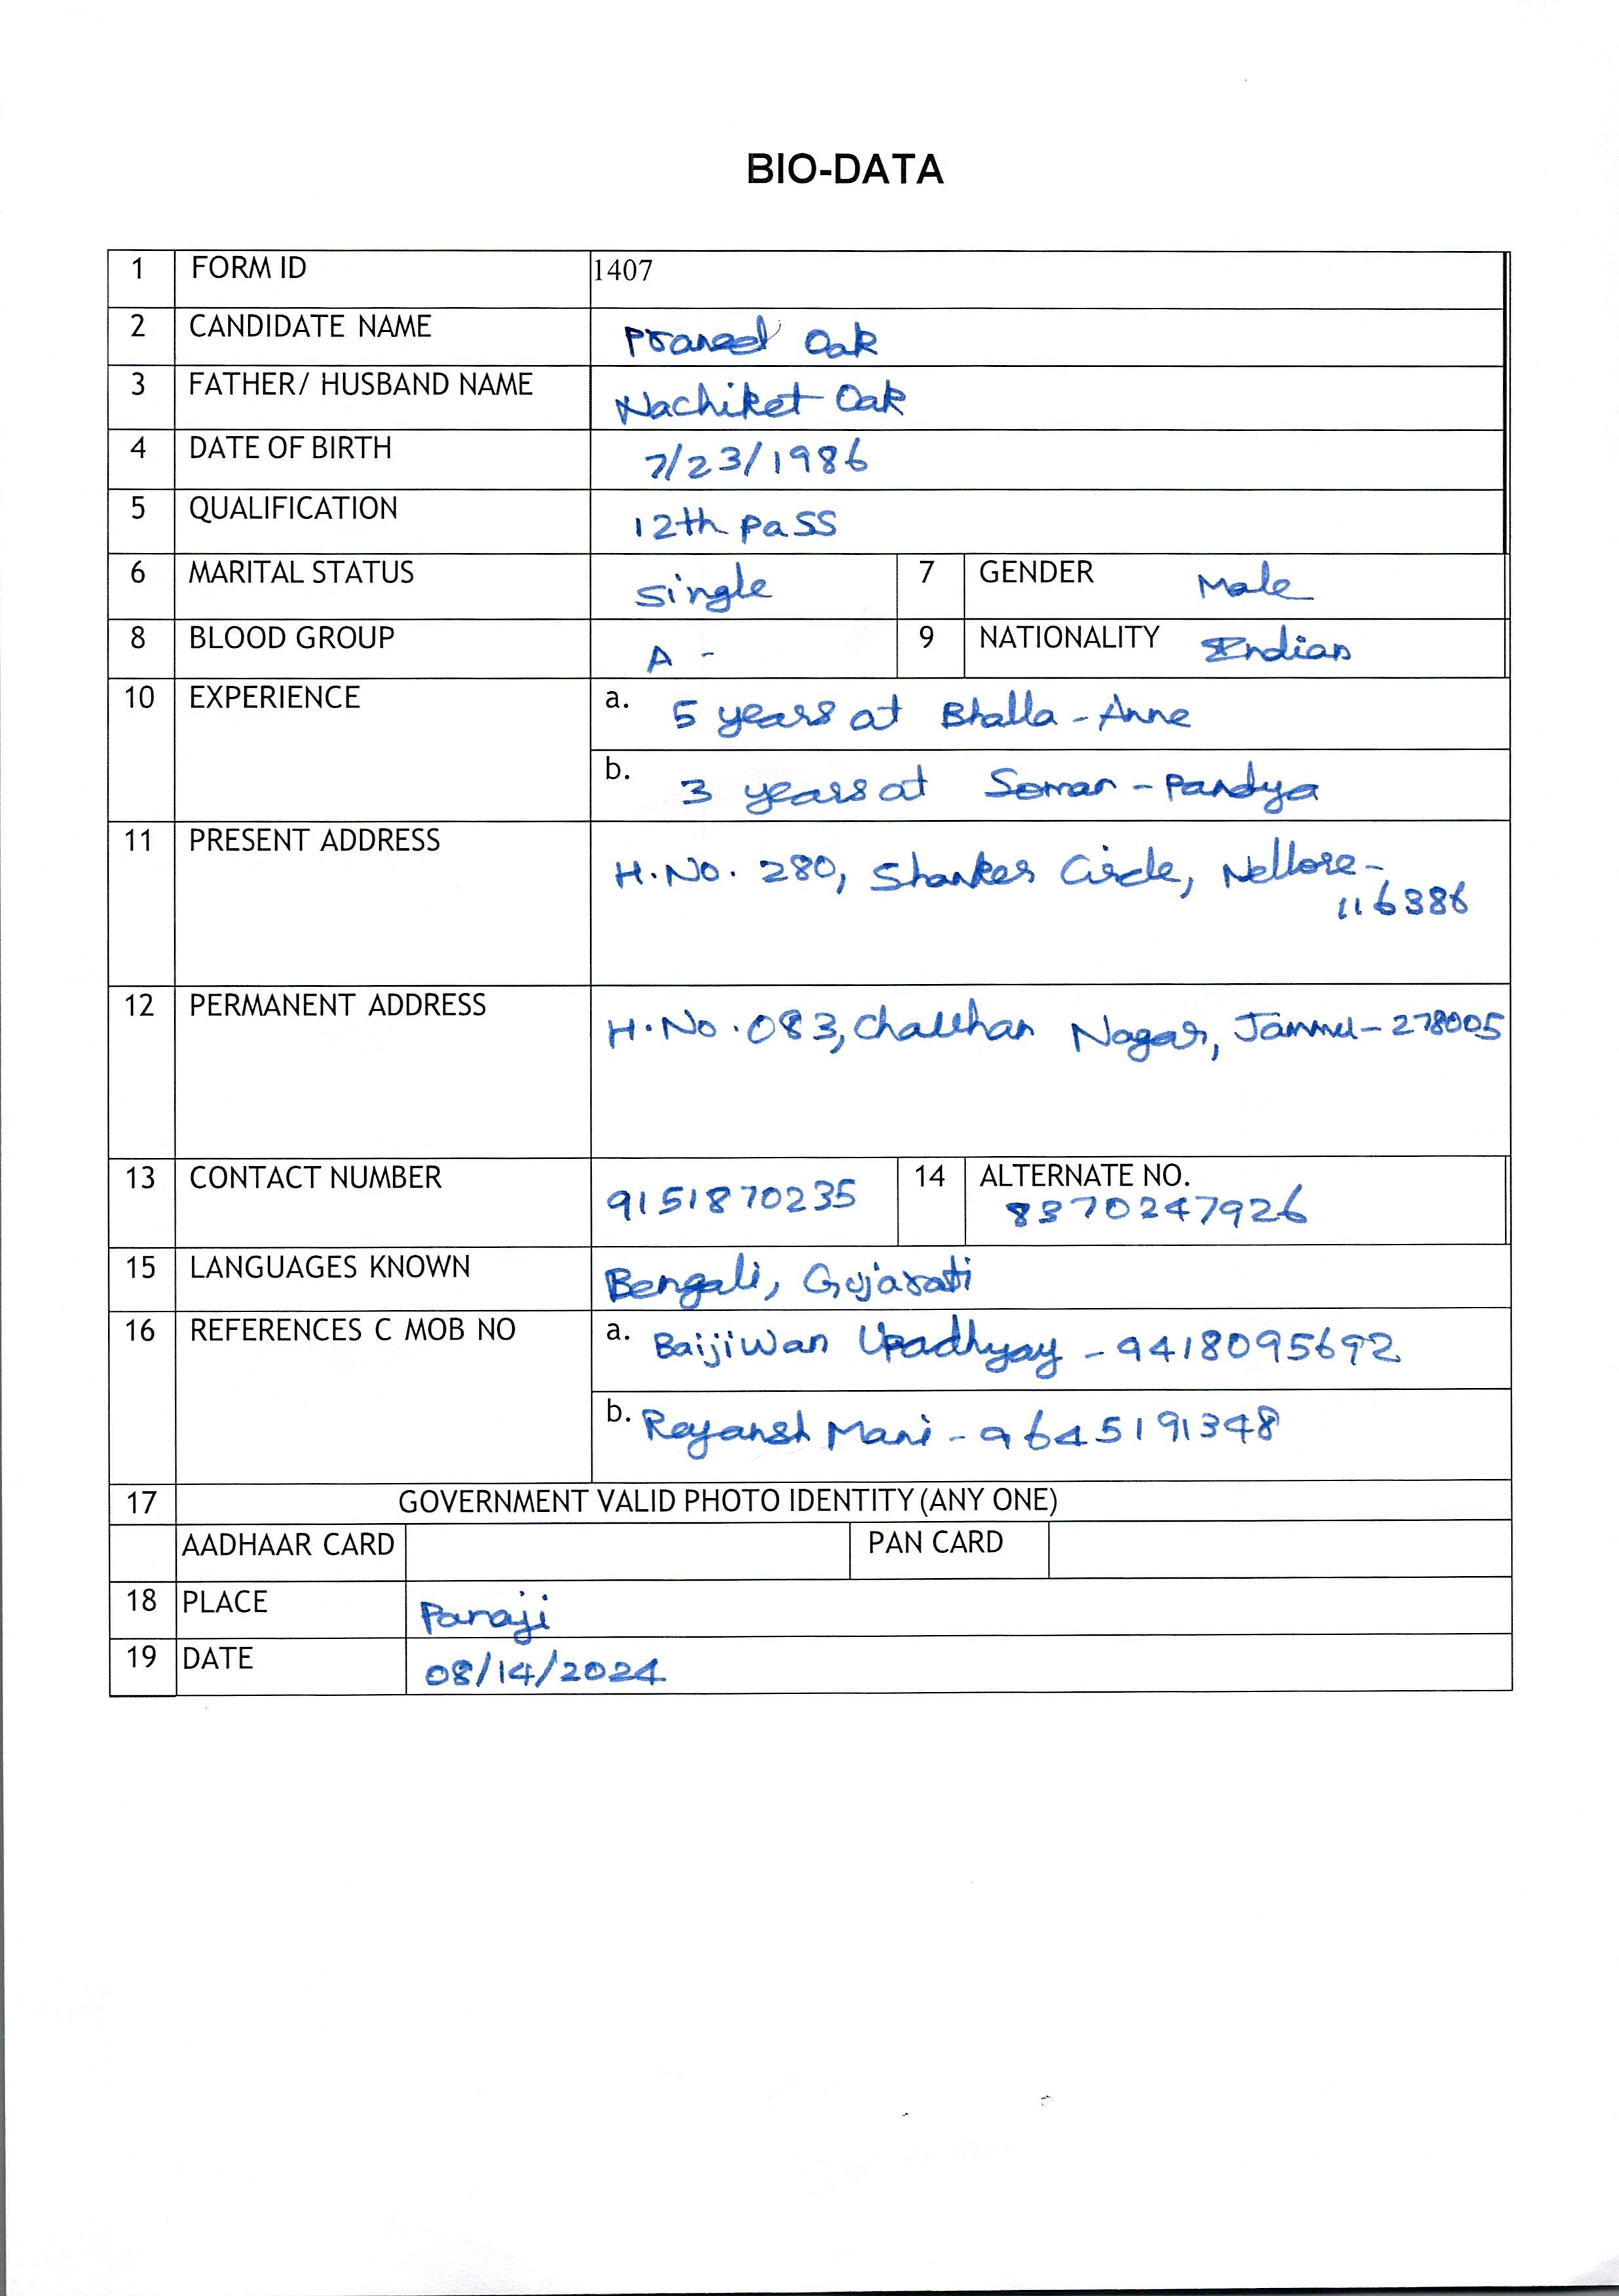 BIO-DATA
1 FORM ID 1407
2 CANDIDATE NAME Praneel Oak
3 FATHER/ HUSBAND NAME Nachiket Oak
4 DATE OF BIRTH 7/23/1986
5 QUALIFICATION 12th pass
6 MARITAL STATUS single 7 GENDER Male
8 BLOOD GROUP A - 9 NATIONALITY Indian
10 EXPERIENCE a. 5 years at Bhalla - Anne
b. 3 years at Soman - Pandya
11 PRESENT ADDRESS H.No. 280, Shanker Circle, Nellore -
116386
12 PERMANENT ADDRESS H.No. 083, Chauhan Nagar, Jammu - 278005
13 CONTACT NUMBER 9151870235 14 ALTERNATE NO.
8370247926
15 LANGUAGES KNOWN Bengali, Gujarati
16 REFERENCES C MOB NO a. Baijiwan Upadhyay - 9418095692
b. Reyansh Mani - 9645191348
17 GOVERNMENT VALID PHOTO IDENTITY (ANY ONE)
AADHAAR CARD PAN CARD
18 PLACE Panaji
19 DATE 08/14/2024